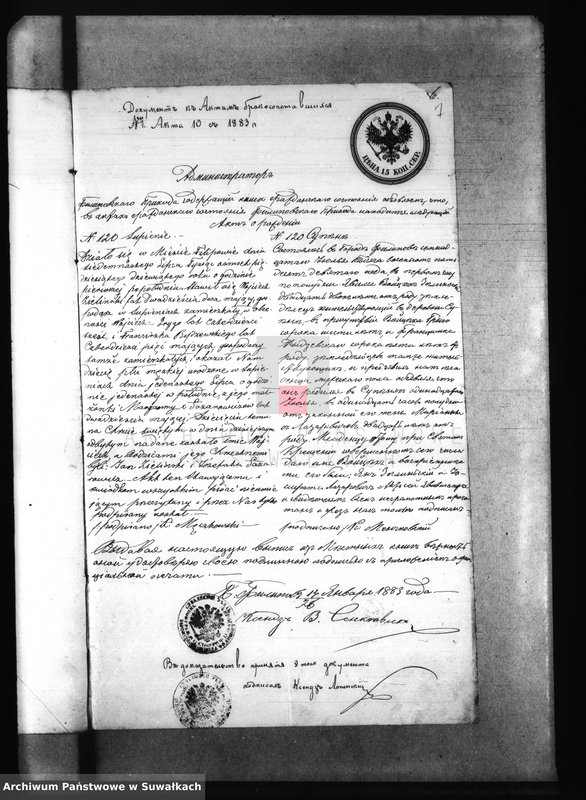 6
7
Документъ къ Актамъ бракосочетавшихся
№ Акта 10 съ 1883 г
ЦѢНА 15 КОП. СЕР.
Администраторъ
Филиповскаго Прихода содержащій книги Гражданскаго состоянія объявляетъ, что
въ актахъ гражданскаго состоянія Филиповскаго Прихода находитъ слѣдующій
Актъ о рожденіи
N 120 Supienie
Działo się w Mieście Filipowie dnia
siedemnastego Lipca tysiąc ośmset pięć
dziesiątego dziewiątego roku o godzinie
pierwszej popołudniu Stawił się Wojciech
Zieliński lat dwadzieścia dwa mający, go
spodarz w Supieniach zamieszkały, w obe
cności Wojciecha lat czterdzieści
sześć, i Franciszka lat
czterdzieści pięć mających, gospodarzy
tamże zamieszkałych, i okazał Nam
dziecię płci męzkiej urodzone w Supie
niach dnia jedenastego Lipca o godzi
nie jedenastej w południe, z jego mał
żonki Maryanny z Łazarewiczów lat
dwadzieścia mającej. Dziecięciu temu
na Chrzcie świętym w dniu dzisiejszym
odbytym nadane zostało imie Woj
ciech a Rodzicami jego Chrzestnemi
byli Jan Zieliński i Józefata Łaza
rewicz. Akt ten stawającemu i
świadkom niepiśmiennym
przeczytany i przez Nas tylko
podpisany został
podpisano X.
N 120 Супени
Состоялось въ городѣ Филиповѣ семнад
цатаго Іюля тысяча восемьсотъ пять
десятъ девятаго года, въ первомъ часу
по полудни. Явился Войцехъ Зелинскій
двадцати двухъ лѣтъ отъ роду земле
дѣлецъ жительствующій въ деревни Су
пени, въ присутствіи Войцеха
сорока шести лѣтъ и Франциска
сорока пяти лѣтъ отъ
роду, земледѣльцевъ тамже житель
ствующихъ, и предъявилъ намъ мла
денца мужескаго пола объявляя что
онъ родился въ Супеняхъ одинадцатаго
Іюля, въ одинадцать часовъ пополудни
отъ законной его жены Маріанны
изъ Лазаревичевъ двадцати лѣтъ отъ
роду. Младенцу этому при Святомъ
Крещеніи совершенномъ сего числа
дано имя Войцехъ а воспріемника
ми его были, Янъ Зелинскій и Іо
зефата Лазаревичъ. Актъ сей объявляющему
и свидѣтелямъ всѣмъ неграмотнымъ прочи
танъ и чрезъ насъ только подписанъ
подписано Кс.
Выдавая настоящую выпись изъ Метычныхъ книгъ вѣрность
оной удостовѣряю своею подписью съ приложеніемъ оффи
ціальной печати
П. Филиповъ 14/26 Января 1883 года
Ксендзъ В.
Въ доказательство принятія этого документа
подписалъ Ксендзъ
Archiwum Państwowe w Suwałkach